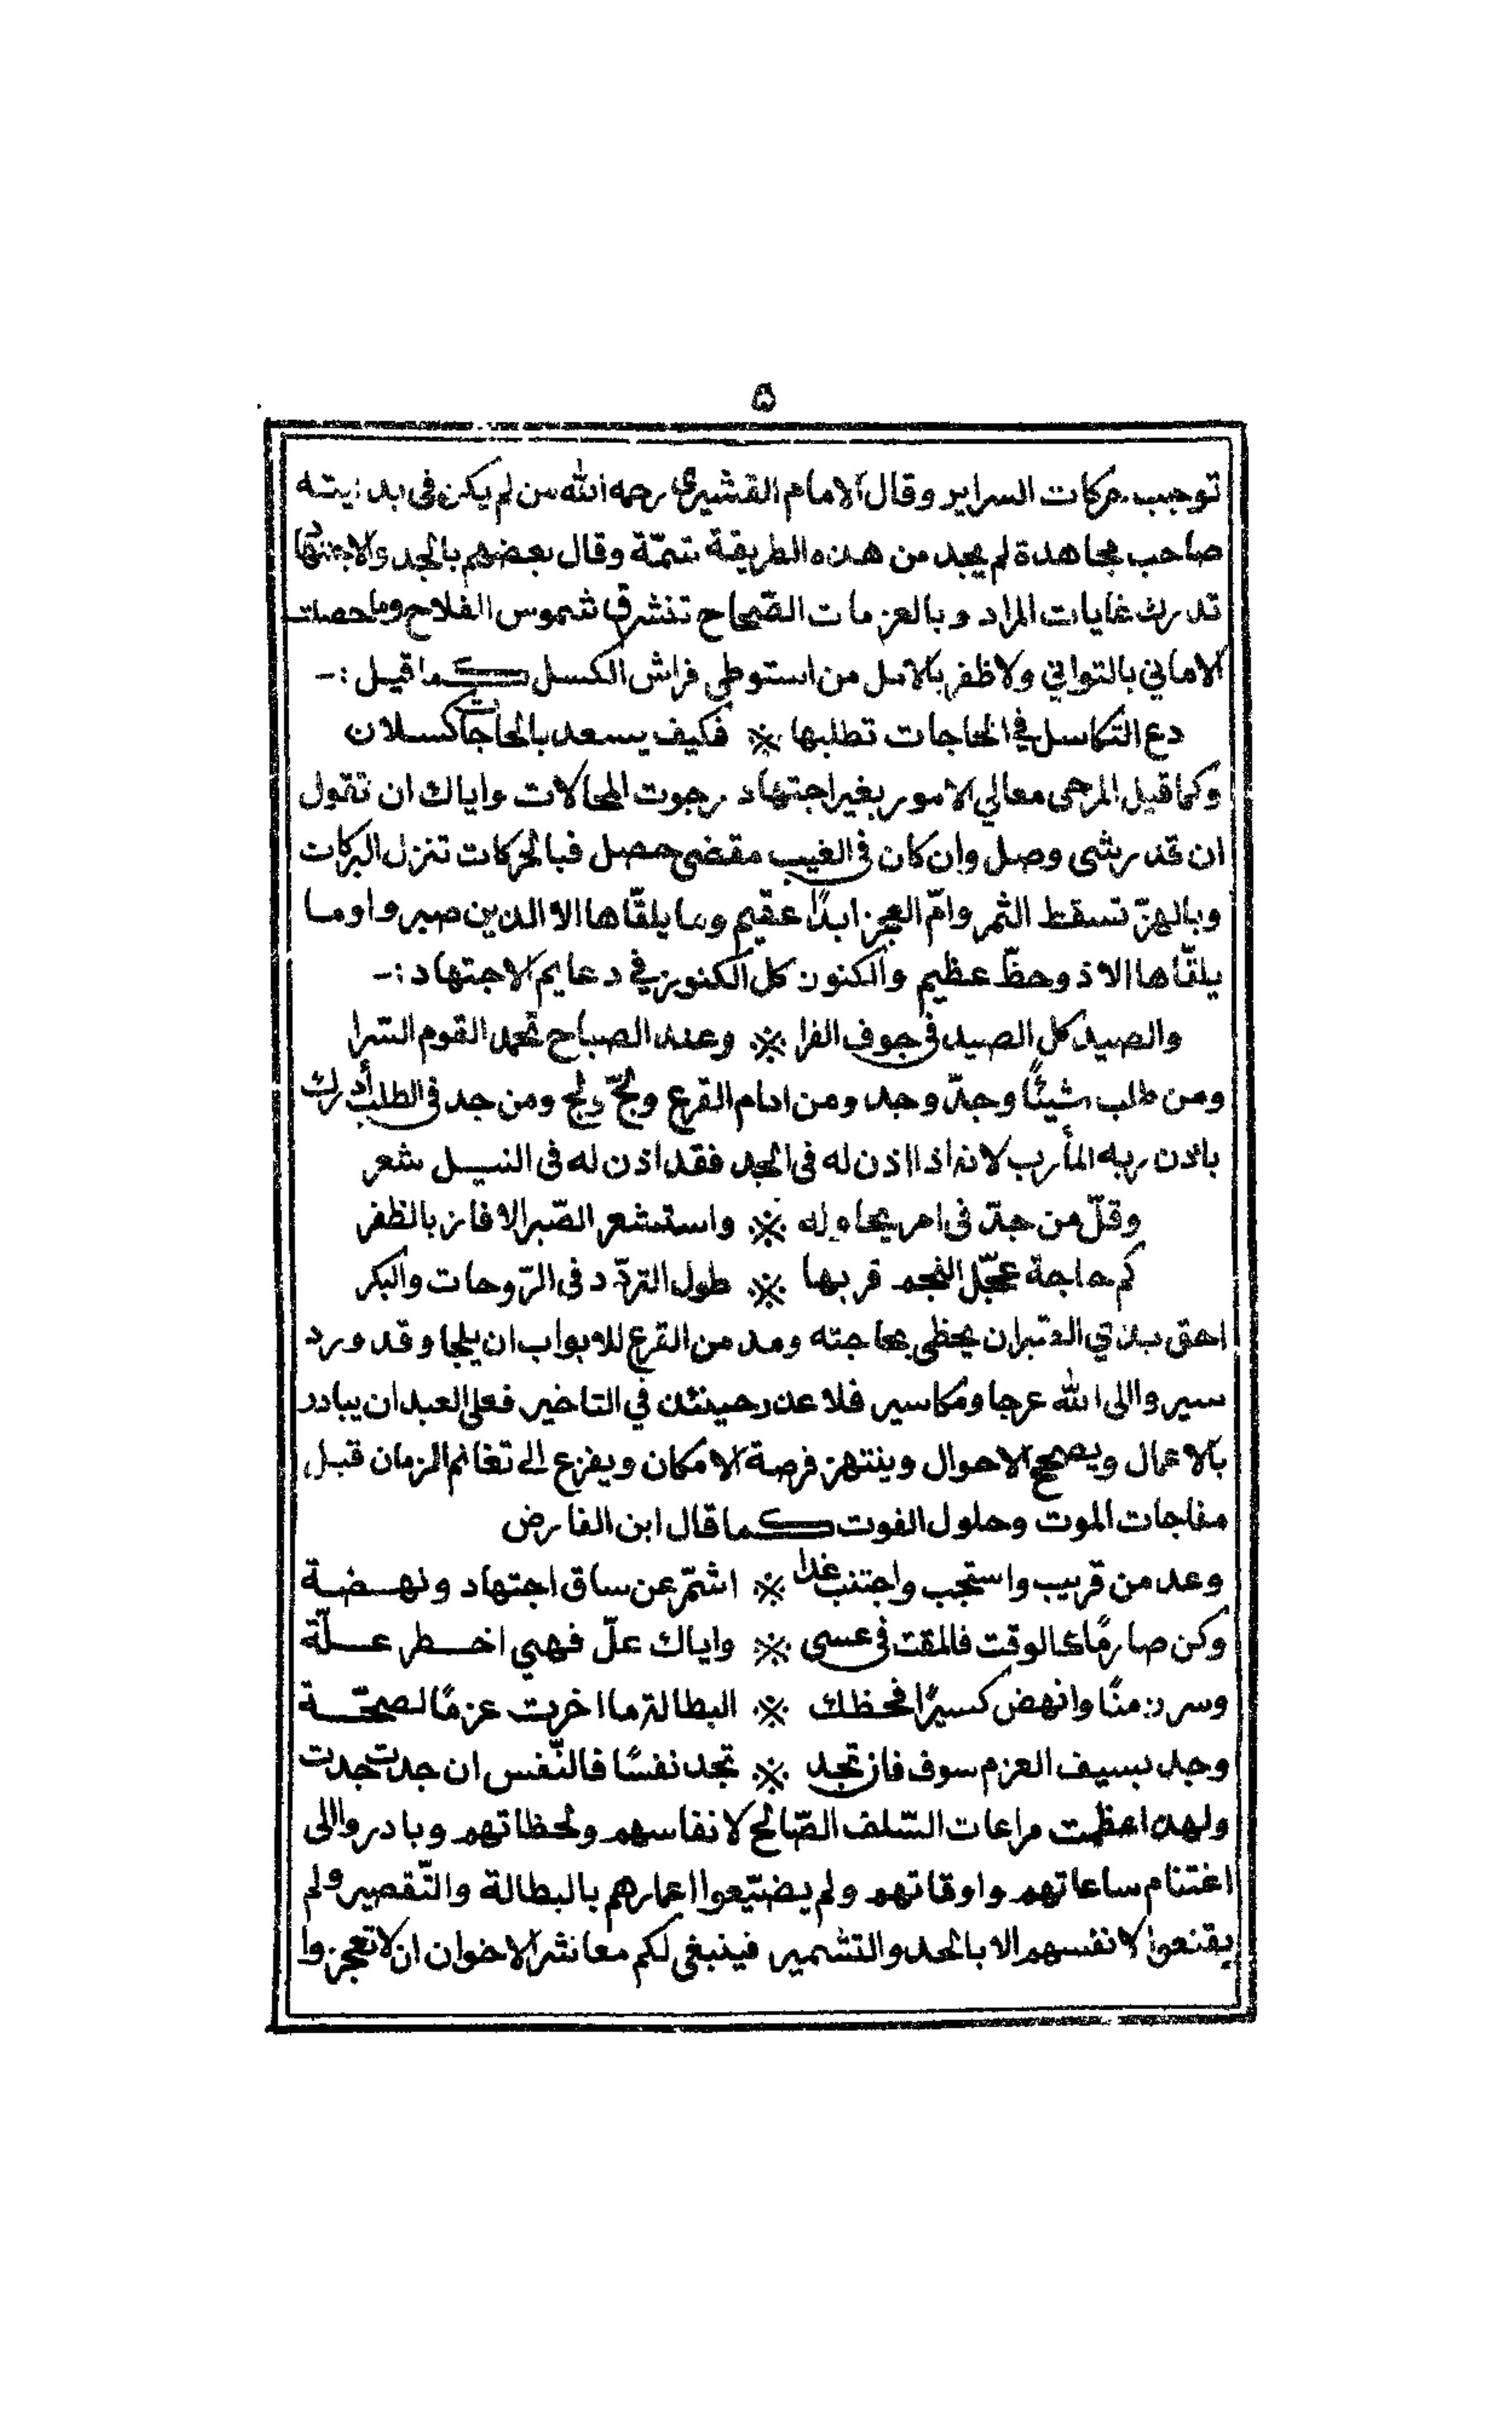 ۵
توجب حركات السراير وقال الامام القشيرى رحمه الله من لم يكن فى بدايته
صاحب مجاهدة لم يجد من هذه الطريقة شمّة وقال بعضهم بالجد والاجتهاد
تدرك غايات المراد وبالعزمات الصّحاح تشرق شموس الفلاح وما حصلت
الاماني بالتواني ولا ظفر بالامل من استوطى فراش الكسل كما قيل :-
دع التكاسل في الحاجات تطلبها ※ فكيف يسعد بالحاجات كسلان
وكما قيل المرجى معالي الامور بغير اجتهاد رجوت المحالات واياك ان تقول
ان قدر شى وصل وان كان فى الغيب مقضى حصل فبالحركات تنزل البركات
وبالهزّ تسقط الثمر وامّ العجز ابدًا عقيم وما يلقّاها الا الذين صبروا وما
يلقّاها الا ذو حظّ عظيم والكنوز كل الكنوز في دعايم الاجتهاد :-
والصيد كل الصيد فى جوف الفرا ※ وعند الصباح تحمد القوم السّرا
ومن طلب شيئًا وجدّ وجد ومن ادام القرع ولجّ ولج ومن جد فى الطلب أدرك
باذن ربه المأرب لانه اذا اذن له فى الجد فقد اذن له فى النيل شعر
وقلّ من جدّ فى امر يحاوله ※ واستشعر الصّبر الا فاز بالظفر
كم حاجة عجّل النجح قربها ※ طول التردّد فى الرّوحات والبكر
احق بذي الصبر ان يحظى بحاجته ومدمن القرع للابواب ان يلجا وقد ورد
سيروا الى الله عرجا ومكاسير فلا عذر حينئذ في التاخير فعلى العبد ان يبادر
بالاعمال ويصحح الاحوال وينتهز فرصة الامكان ويفزع الى تغانم الزمان قبل
مفاجات الموت وحلول الفوت كما قال ابن الفارض
وعد من قريب واستجب واجتنب غدا ※ اشمّر عن ساق اجتهاد ونهضة
وكن صارمًا كالوقت فالمقت فى عسى ※ واياك علّ فهي اخطر علّة
وسر زمنًا وانهض كسيرًا فحظك ※ البطالة ما اخرت عزمًا لصحّة
وجد بسيف العزم سوف فان تجد ※ تجد نفسًا فالنّفس ان جدت جدت
ولهذا عظمت مراعات السّلف الصّالح لانفاسهم ولحظاتهم وبادروا الى
اغتنام ساعاتهم واوقاتهم ولم يضيّعوا اعمارهم بالبطالة والتّقصير ولم
يقنعوا لانفسهم الا بالجد والتشمير فينبغى لكم معاشر الاخوان ان لا تعجزوا